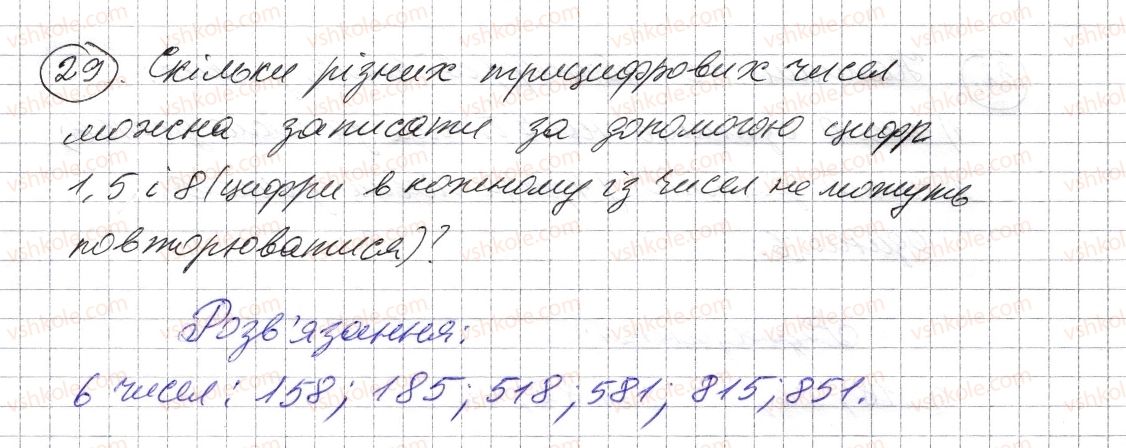 29. Скільки різних трицифрових чисел
можна записати за допомогою цифр
1, 5 і 8 (цифри в кожному із чисел не можуть
повторюватися)?
Розв'язання:
6 чисел: 158; 185; 518; 581; 815; 851.